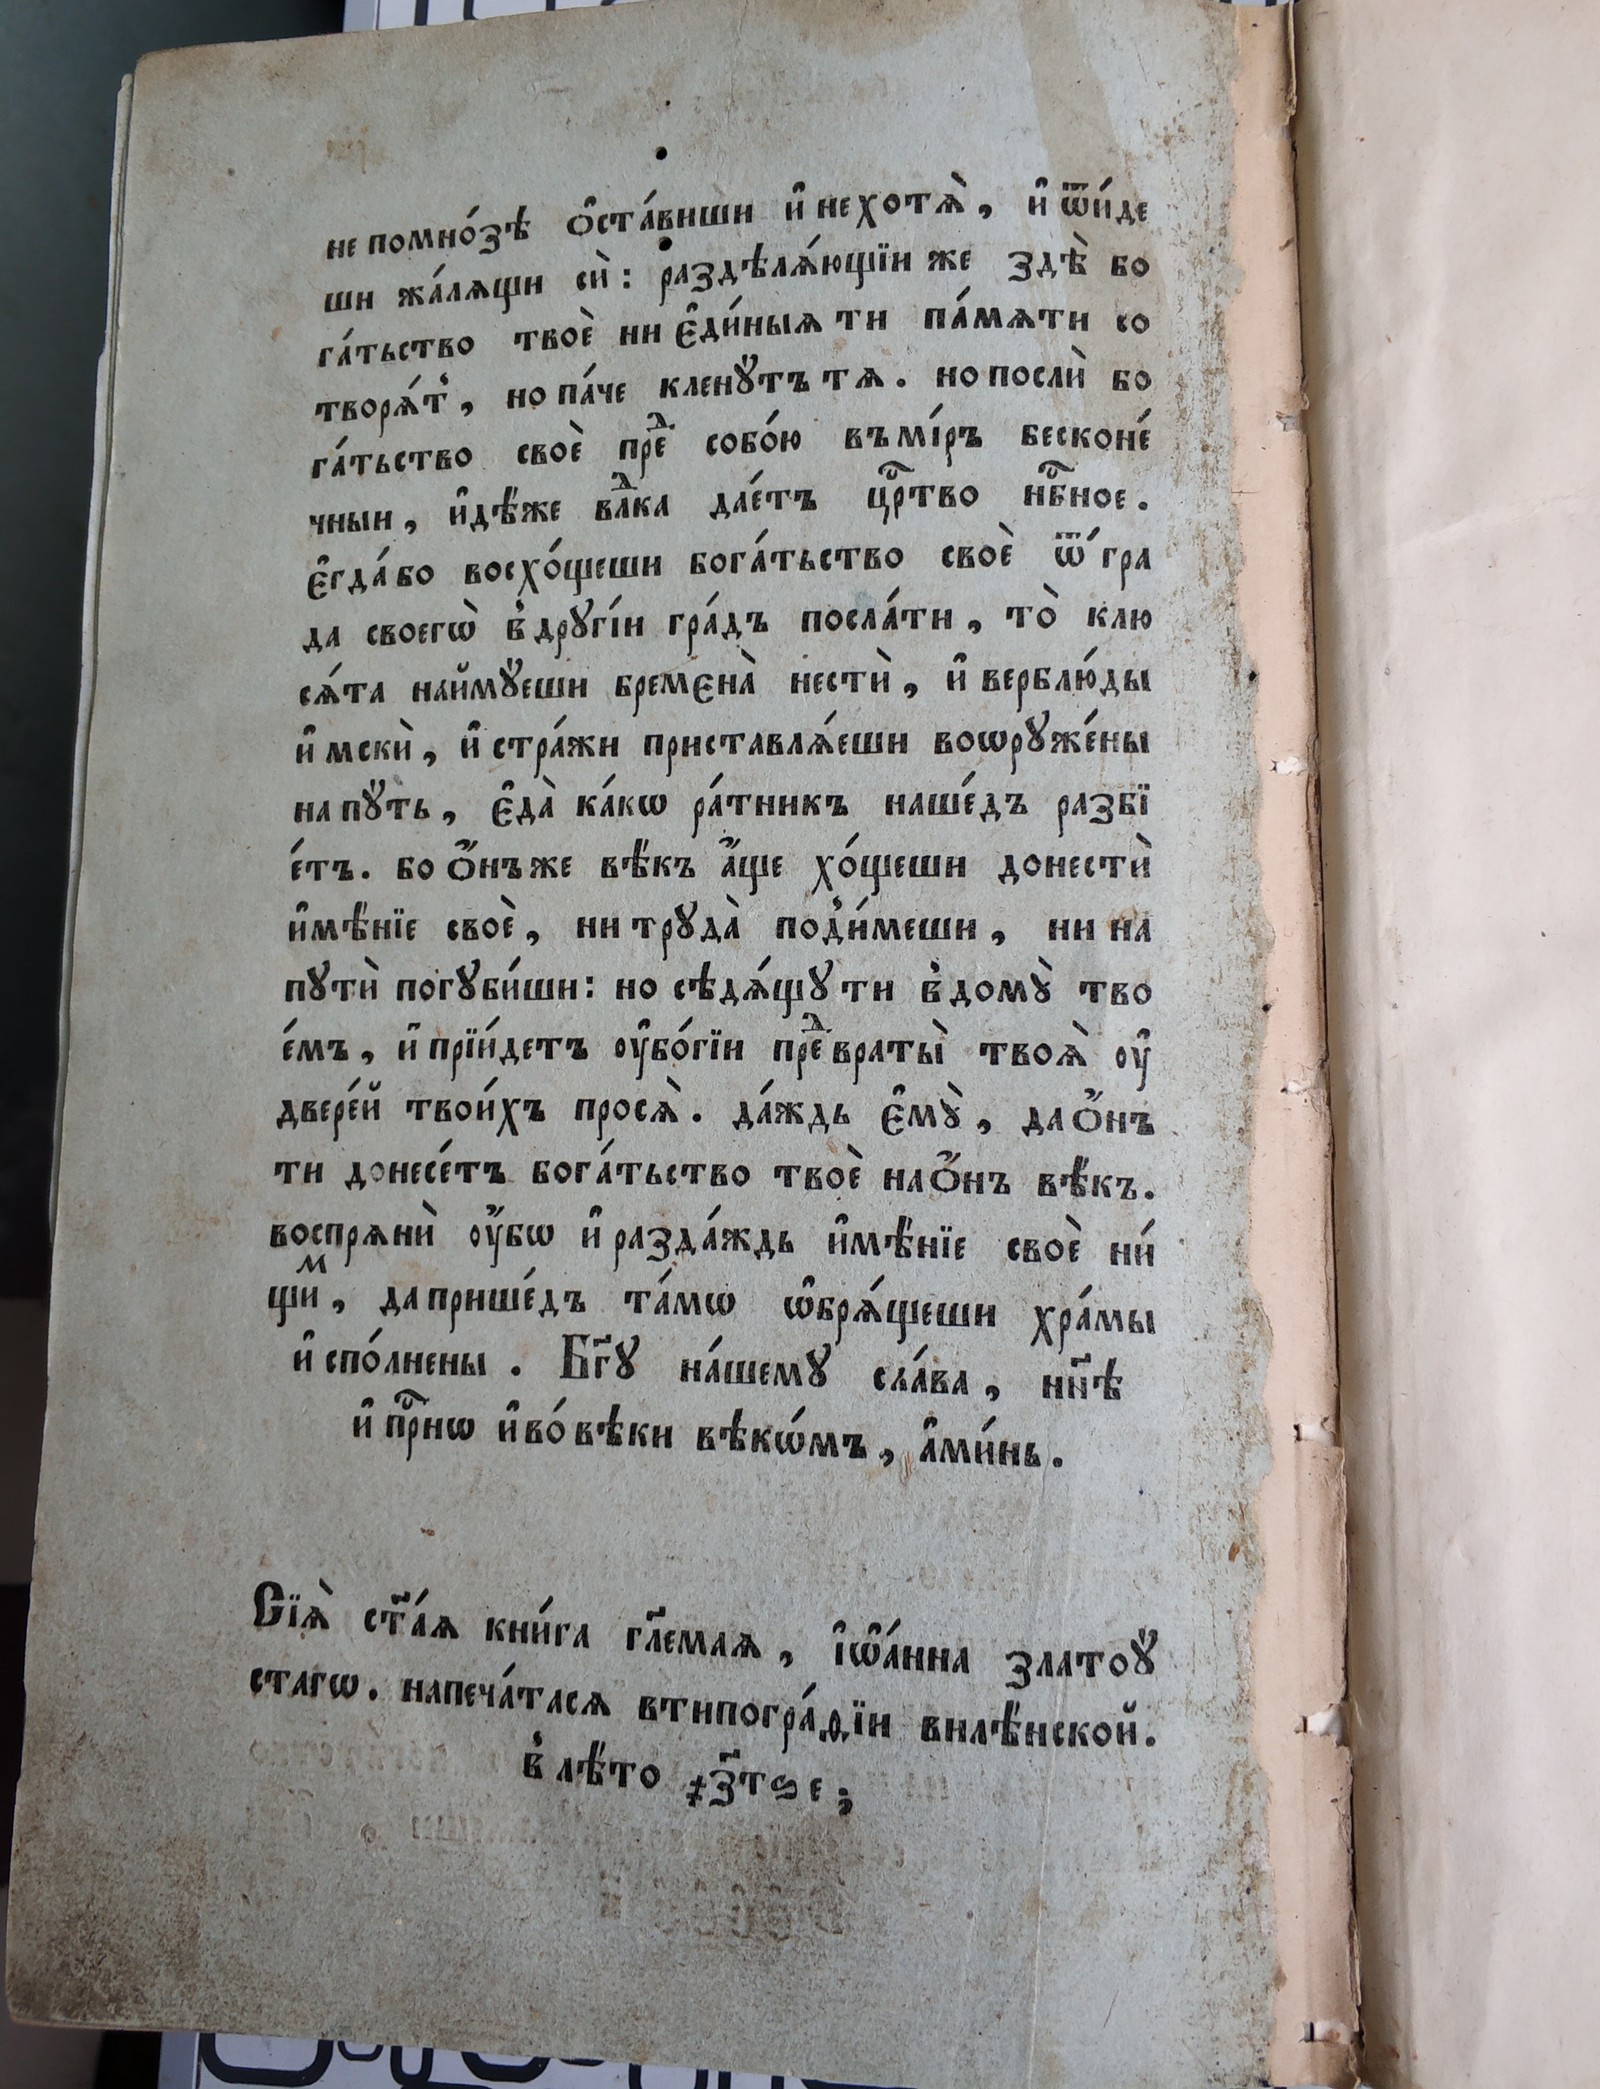 не помно́зѣ ѻ҆ста́виши и҆ не хотѧ̀, и҆ ѿи́де
ши жа́лѧщи сѝ: раздѣлѧ́ющїи же здѣ̀ бо
га́тьство твоѐ ни є҆ди́ныѧ ти па́мѧти со
творѧ́т̾, но па́че клену́тъ тѧ. но послѝ бо
га́тьство своѐ пре́ⷣ собо́ю въ мі́ръ бесконе́
чныи, и҆дѣ́же влⷣка дае́тъ црⷭ҇тво нбⷭ҇ное.
є҆гда́ бо восхо́щеши бога́тьство своѐ ѿ гра
да своегѡ̀ в̾ другі́и гра́дъ посла́ти, то̀ клю
сѧ́та найму́еши бременà нестѝ, и҆ верблю́ды
и҆ мскѝ, и҆ стра́жи приставлѧ́еши воѡружє́ны
на пу́ть, є҆дà ка́кѡ ра́тникъ наше́дъ разбї
е́тъ. во ѻ҆́нъ же вѣ́къ а҆́ще хо́щеши донестѝ
и҆мѣ́нїе своѐ, ни трудà под̾и́меши, ни на
путѝ погуби́ши: но сѣдѧ́щу ти в̾ дому̀ тво
е́мъ, и҆ прїи́детъ ᲂу҆бо́гїи пре́ⷣ враты̀ твоѧ̀ ᲂу҆
двере́й твои́хъ просѧ̀. да́ждь є҆му̀, да ѻ҆́нъ
ти донесе́тъ бога́тьство твоѐ на ѻ҆́нъ вѣ́къ.
воспрѧнѝ ᲂу҆́бѡ и҆ разда́ждь и҆мѣ́нїе своѐ ни́
щиⷨ, да прише́дъ та́мѡ ѡ҆брѧ́щеши хра́мы
и҆спо́лнены. Бг҃у на́шему сла́ва, нн҃ѣ
и҆ прⷭ҇нѡ и҆ во́ вѣки вѣкѡ́мъ, а҆ми́нь.
Сїѧ̀ ст҃а́ѧ кни́га гл҃емаѧ, і҆ѡ҆а́нна златоу́
стагѡ. напеча́тасѧ в типогра́фїи виле́нской.
в̾ лѣ́то ҂з҃тѕе;